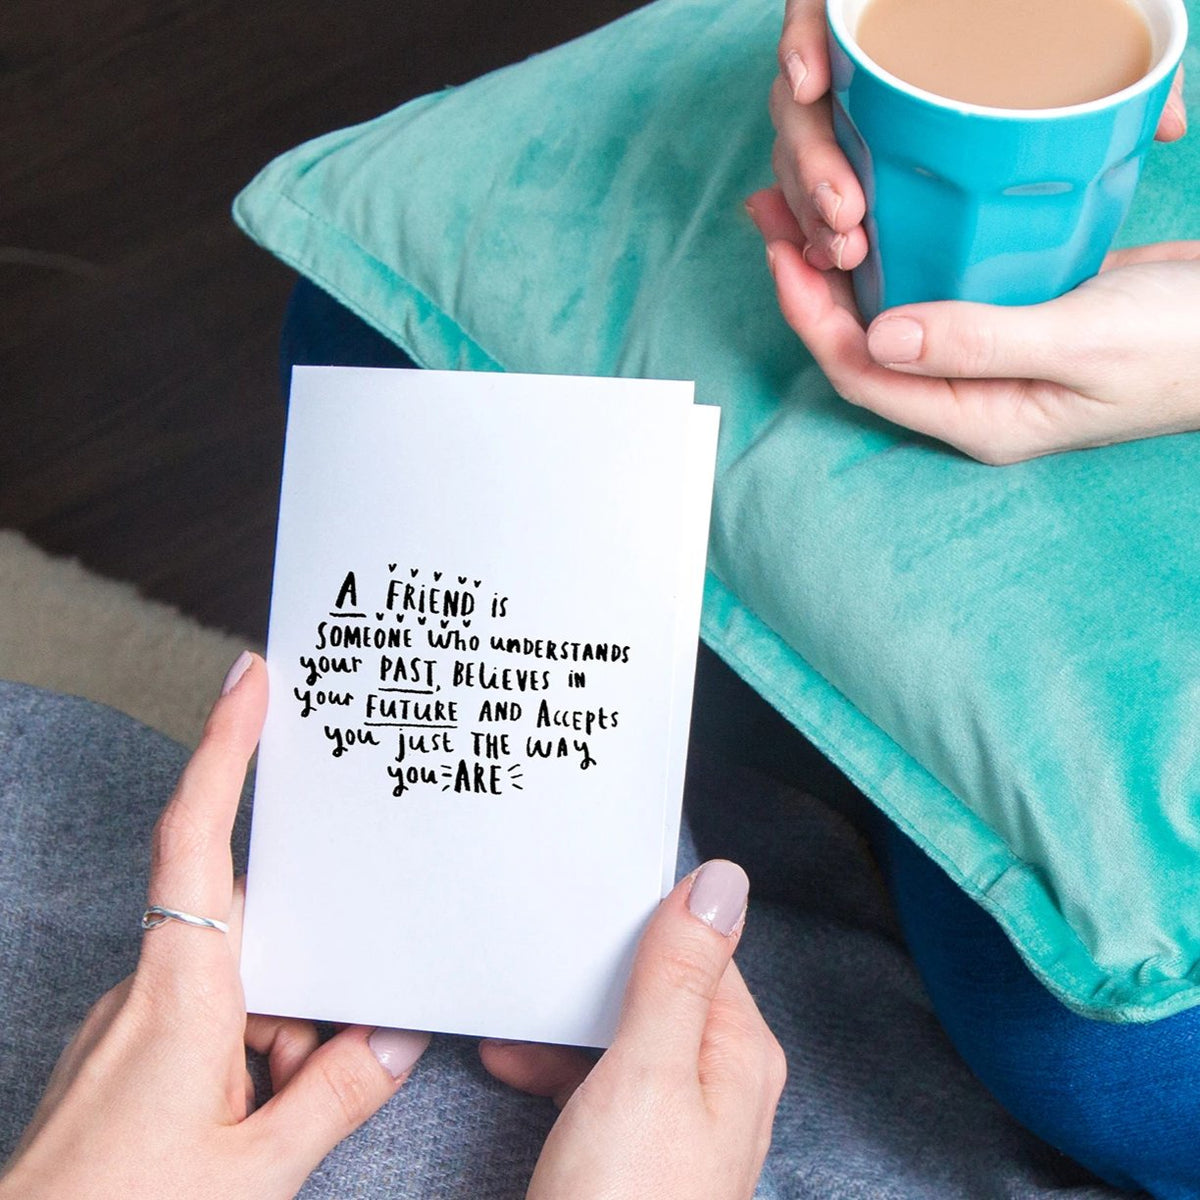 A FRiEND is
SOMEONE Who unDERSTANDS
your PAST, BELiEVES iN
your FUTURE AND Accepts
you just THE WAY
you ARE